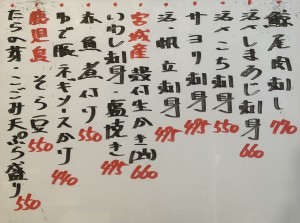 鮫尾肉刺し 770
活〆しめじ刺身 660
活ざこち刺身 550
サヨリ刺身 495
活帆立刺身 495
宮城産 殻付生かき(2ヶ) 660
いわし刺身・塩焼き 495
赤魚煮付け 550
ゆで豚ネギソースかけ 440
鹿児島 そら豆 550
たらの芽・こごみ天ぷら盛り 550